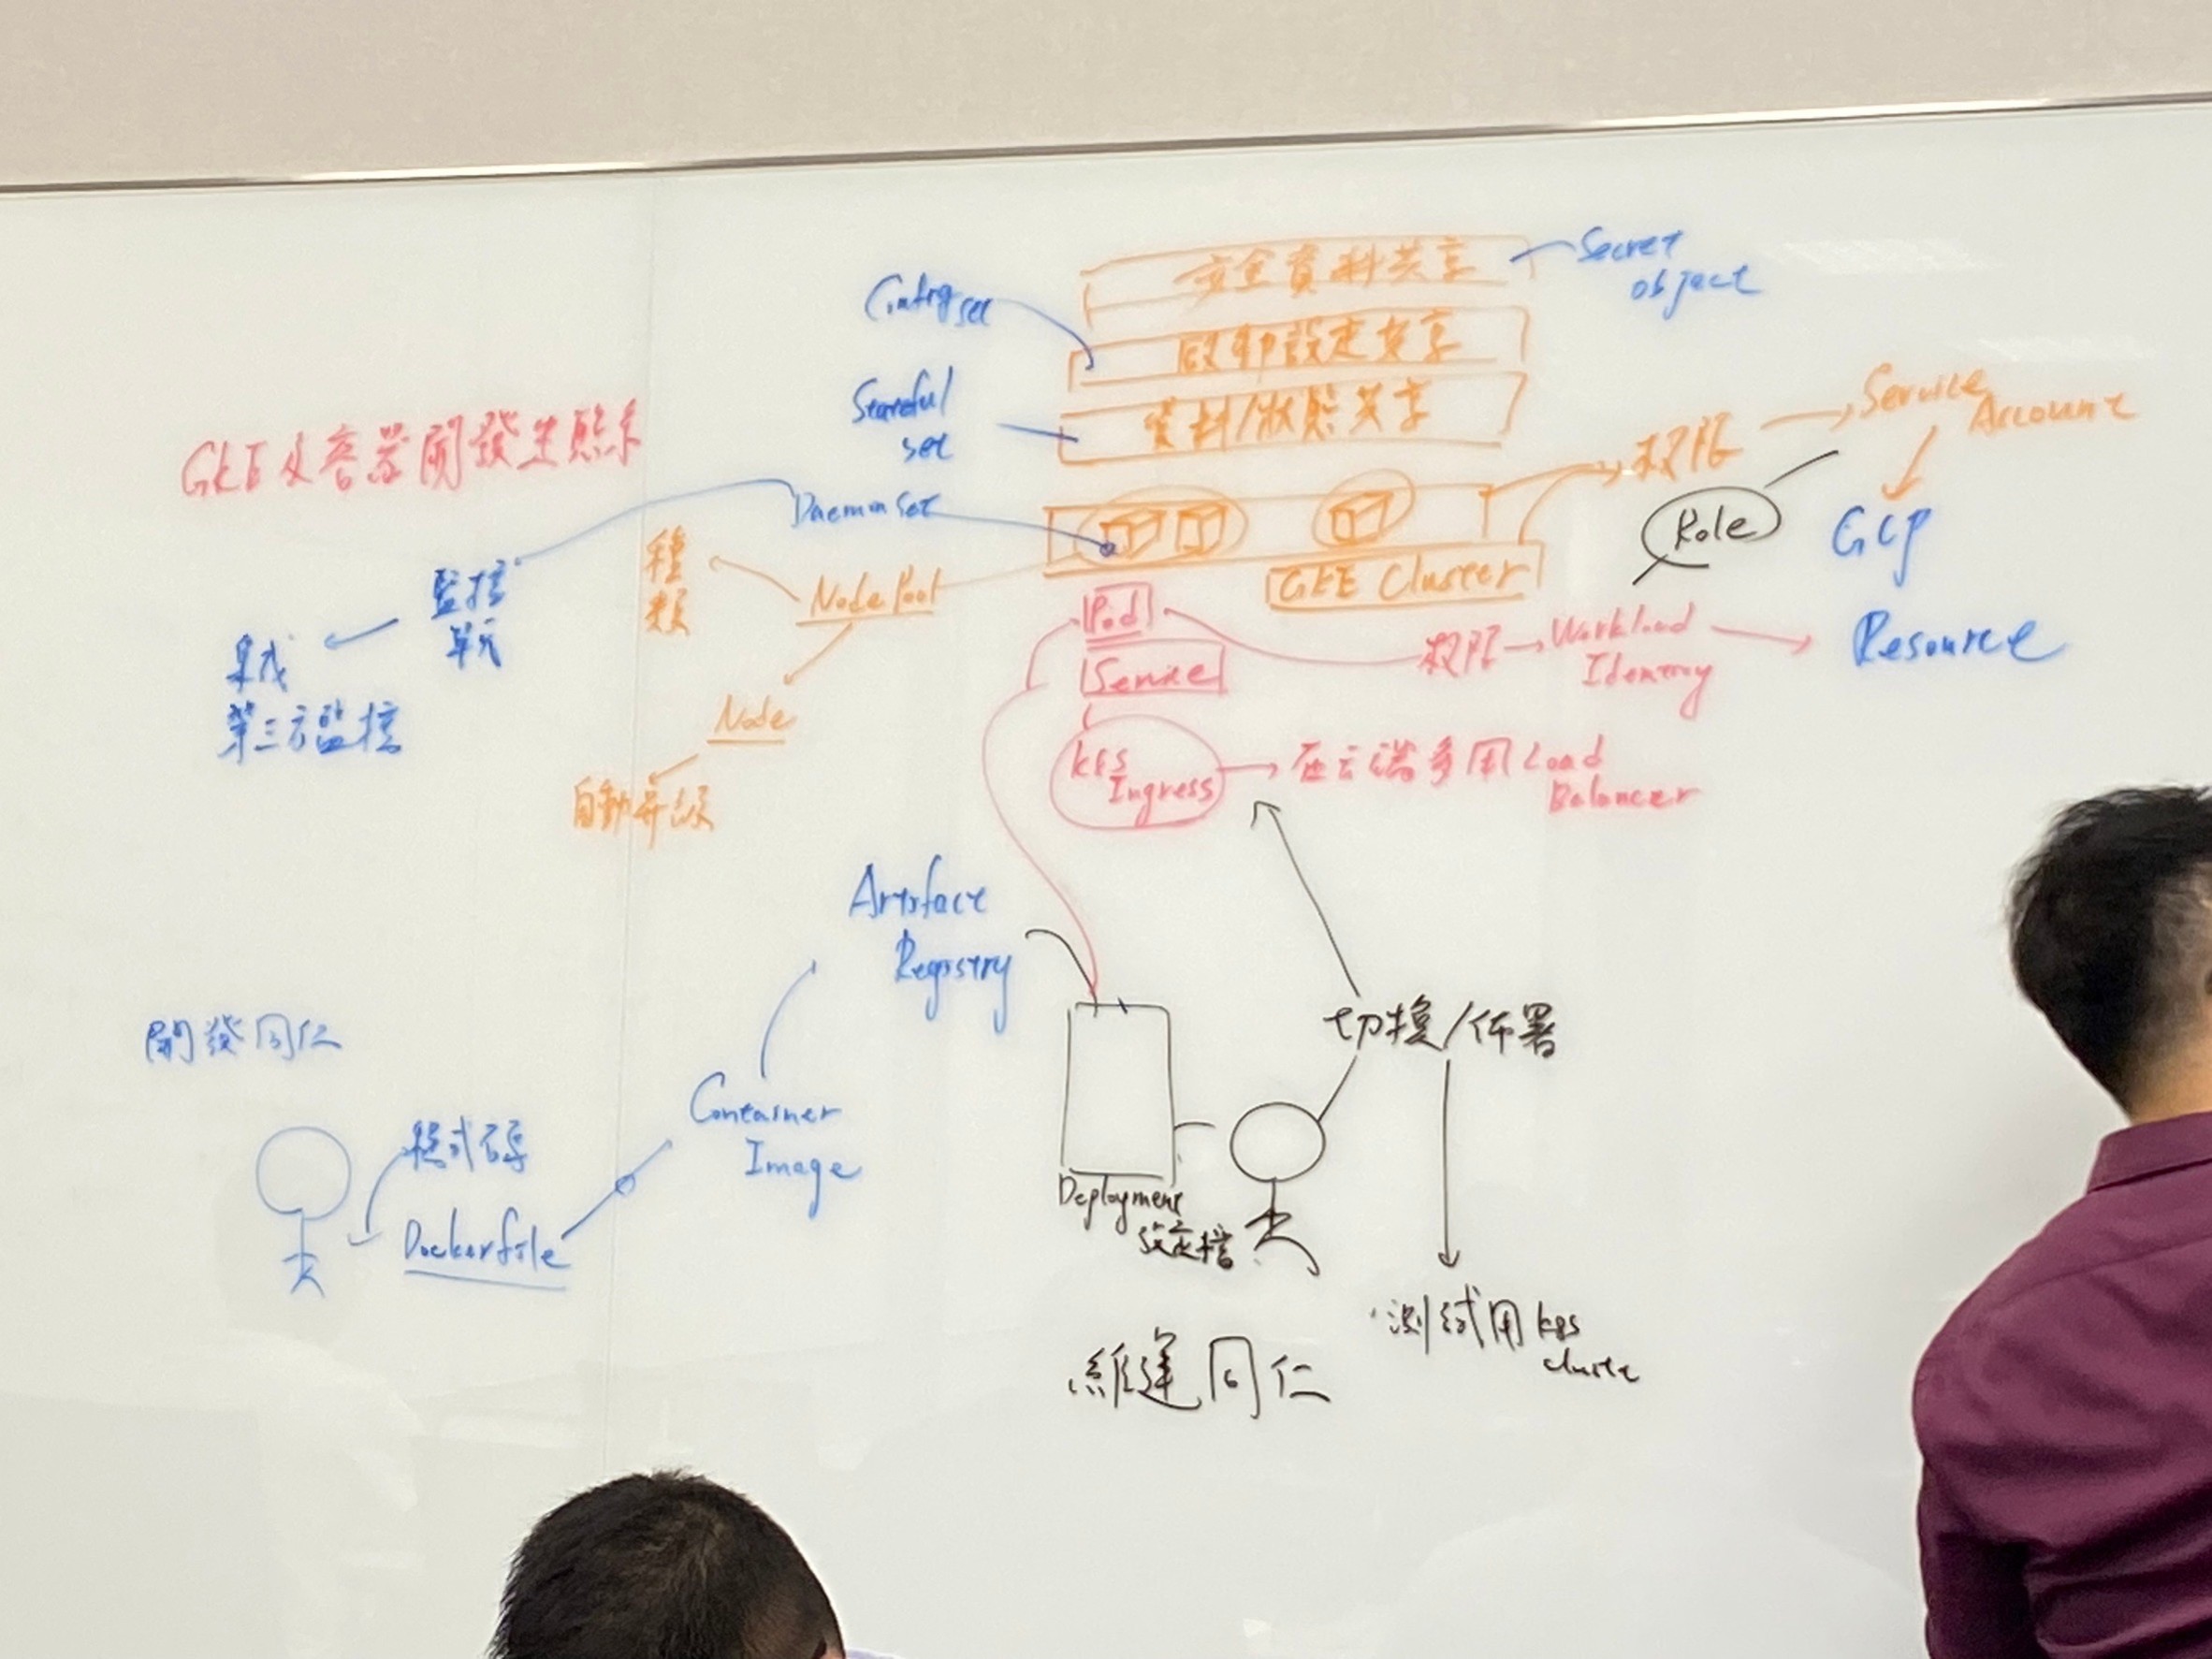 安全資料共享
Secret
object
Config set
啟動設定共享
Stateful
set
資料/狀態共享
GKE及容器開發生態系
權限
Service
Account
Daemon Set
Role
GCP
種
類
Node Pool
GKE Cluster
監控
單元
集成
第三方監控
Pod
Service
權限
Workload
Identity
Resource
Node
自動升級
k8s
Ingress
在雲端多用 Load
Balancer
Artifact
Registry
開發同仁
程式碼
Dockerfile
Container
Image
切換/佈署
Deployment
設定檔
維運同仁
測試用 k8s
cluster